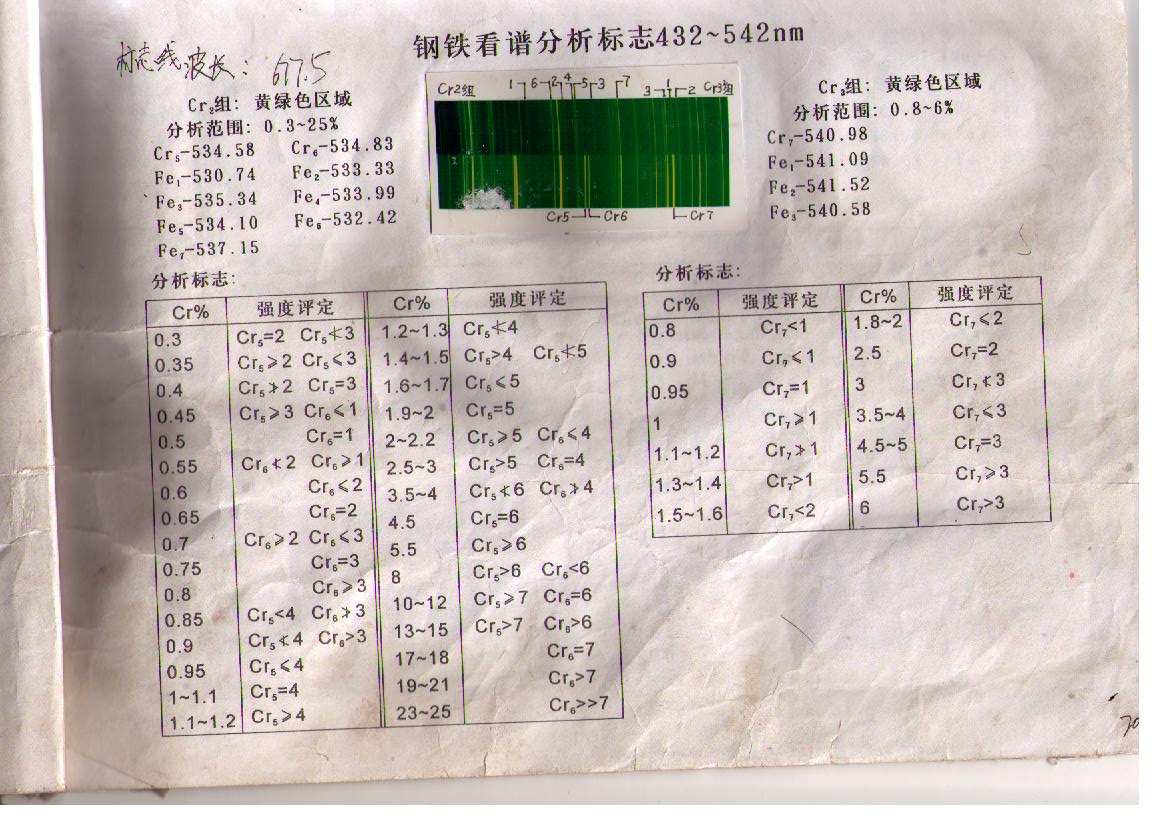 钢铁看谱分析标志432~542nm
标志线波长: 617.5
Cr₂组: 黄绿色区域
分析范围: 0.3~25%
Cr₅-534.58 Cr₆-534.83
Fe₁-530.74 Fe₂-533.33
Fe₃-535.34 Fe₄-533.99
Fe₅-534.10 Fe₆-532.42
Fe₇-537.15
Cr2组 1 6 2 4 5 3 7 3 1 2 Cr3组
Cr5 Cr6 Cr7
Cr₃组: 黄绿色区域
分析范围: 0.8~6%
Cr₇-540.98
Fe₁-541.09
Fe₂-541.52
Fe₃-540.58
分析标志:
Cr% 强度评定 Cr% 强度评定
0.3 Cr₅=2 Cr₅≮3 1.2~1.3 Cr₅≮4
0.35 Cr₅⩾2 Cr₅⩽3 1.4~1.5 Cr₅>4 Cr₅≮5
0.4 Cr₅≯2 Cr₅=3 1.6~1.7 Cr₅⩽5
0.45 Cr₅⩾3 Cr₆⩽1 1.9~2 Cr₅=5
0.5 Cr₆=1 2~2.2 Cr₅⩾5 Cr₆⩽4
0.55 Cr₆≮2 Cr₆⩾1 2.5~3 Cr₅>5 Cr₆=4
0.6 Cr₆⩽2 3.5~4 Cr₅≮6 Cr₆≯4
0.65 Cr₆=2 4.5 Cr₅=6
0.7 Cr₆⩾2 Cr₆⩽3 5.5 Cr₅⩾6
0.75 Cr₆=3 8 Cr₅>6 Cr₆<6
0.8 Cr₆⩾3 10~12 Cr₅⩾7 Cr₆=6
0.85 Cr₅<4 Cr₆≯3 13~15 Cr₅>7 Cr₆>6
0.9 Cr₅≮4 Cr₆>3 17~18 Cr₆=7
0.95 Cr₅⩽4 19~21 Cr₆>7
1~1.1 Cr₅=4 23~25 Cr₆>>7
1.1~1.2 Cr₅⩾4
分析标志:
Cr% 强度评定 Cr% 强度评定
0.8 Cr₇<1 1.8~2 Cr₇⩽2
0.9 Cr₇⩽1 2.5 Cr₇=2
0.95 Cr₇=1 3 Cr₇≮3
1 Cr₇⩾1 3.5~4 Cr₇⩽3
1.1~1.2 Cr₇≯1 4.5~5 Cr₇=3
1.3~1.4 Cr₇>1 5.5 Cr₇⩾3
1.5~1.6 Cr₇<2 6 Cr₇>3